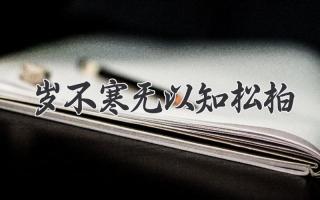 岁不寒无以知松柏